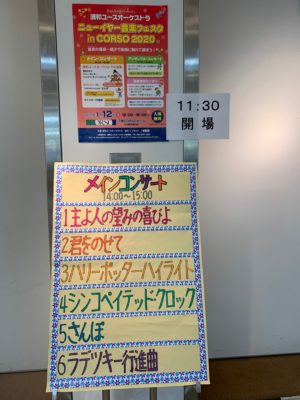 浦和ユースオーケストラ
ニューイヤー音楽フェスタ
in CORSO 2020
メイン・コンサート
アンサンブル・コンサート
11:30
開場
メインコンサート
14:00～15:00
1主よ人の望みの喜びよ
2君をのせて
3ハリーポッターハイライト
4シンコペイテッド・クロック
5さんぽ
6ラデツキー行進曲